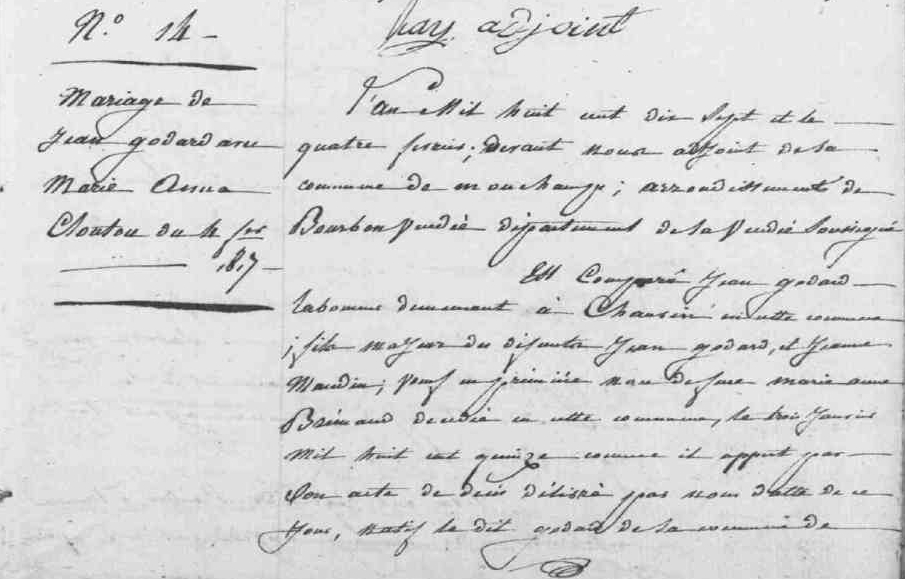 N.o 14
Mariage de
Jean godard avec
Marie Anne
Cloutou du 4 fer
1817
adjoint
L'an Mil huit cent dix Sept et le
quatre fevrier; devant nous adjoint de la
commune de mouchamps; arrondissement de
Bourbon Vendée département de la Vendée Soussigné
Est Comparu Jean godard
laboureur demeurant à Chausin en cette commune
; fils majeur du defunts Jean godard, et Jeanne
Maudin; Veuf en premiere noce de fue marie anne
Brémaud decedée en cette commune, le trois Janvier
Mil huit cent quinze comme il appert par
Son acte de deces délivré par nous datte de ce
Jour, natif le dit godard de la commune de